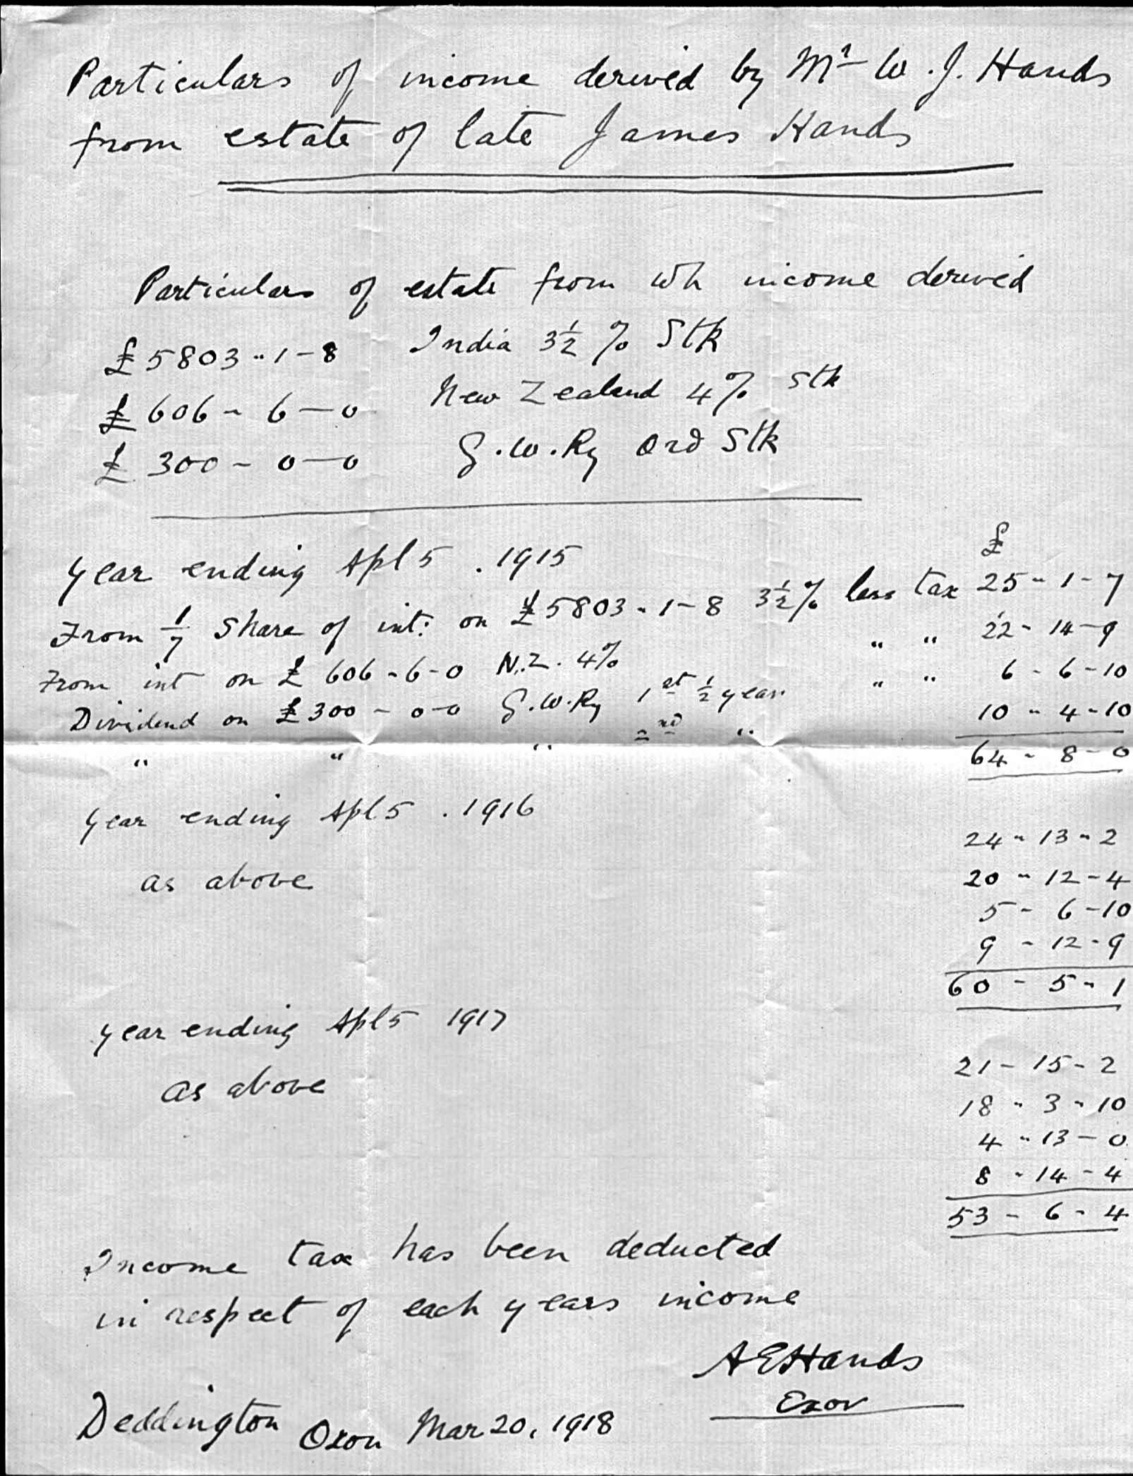 Particulars of income derived by Mr W. J. Hands
from estate of late James Hands
Particulars of estate from wh income derived
£5803-1-8 India 3½ % Stk
£606-6-0 New Zealand 4% Stk
£300-0-0 G.W.Ry Ord Stk
£
Year ending Apl 5. 1915
From 1/7 Share of int: on £5803-1-8 3½% less tax 25-1-7
From int on £606-6-0 N.Z. 4% " " 22-14-9
Dividend on £300-0-0 G.W.Ry 1st ½ year " " 6-6-10
" " " 2nd " 10-4-10
64-8-0
Year ending Apl 5. 1916
as above
24-13-2
20-12-4
5-6-10
9-12-9
60-5-1
Year ending Apl 5 1917
as above
21-15-2
18-3-10
4-13-0
8-14-4
53-6-4
Income tax has been deducted
in respect of each years income
A E Hands
Exor
Deddington Oxon Mar 20, 1918